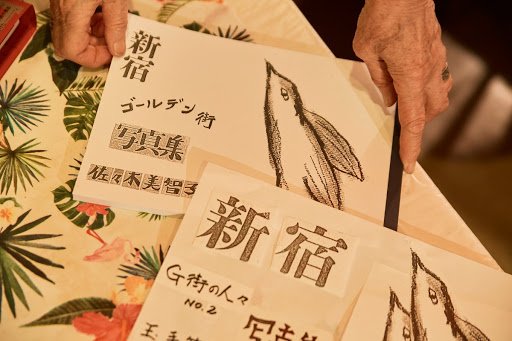 新宿
ゴールデン街
写真集
佐々木美智子
新宿
G街の人々
NO.2